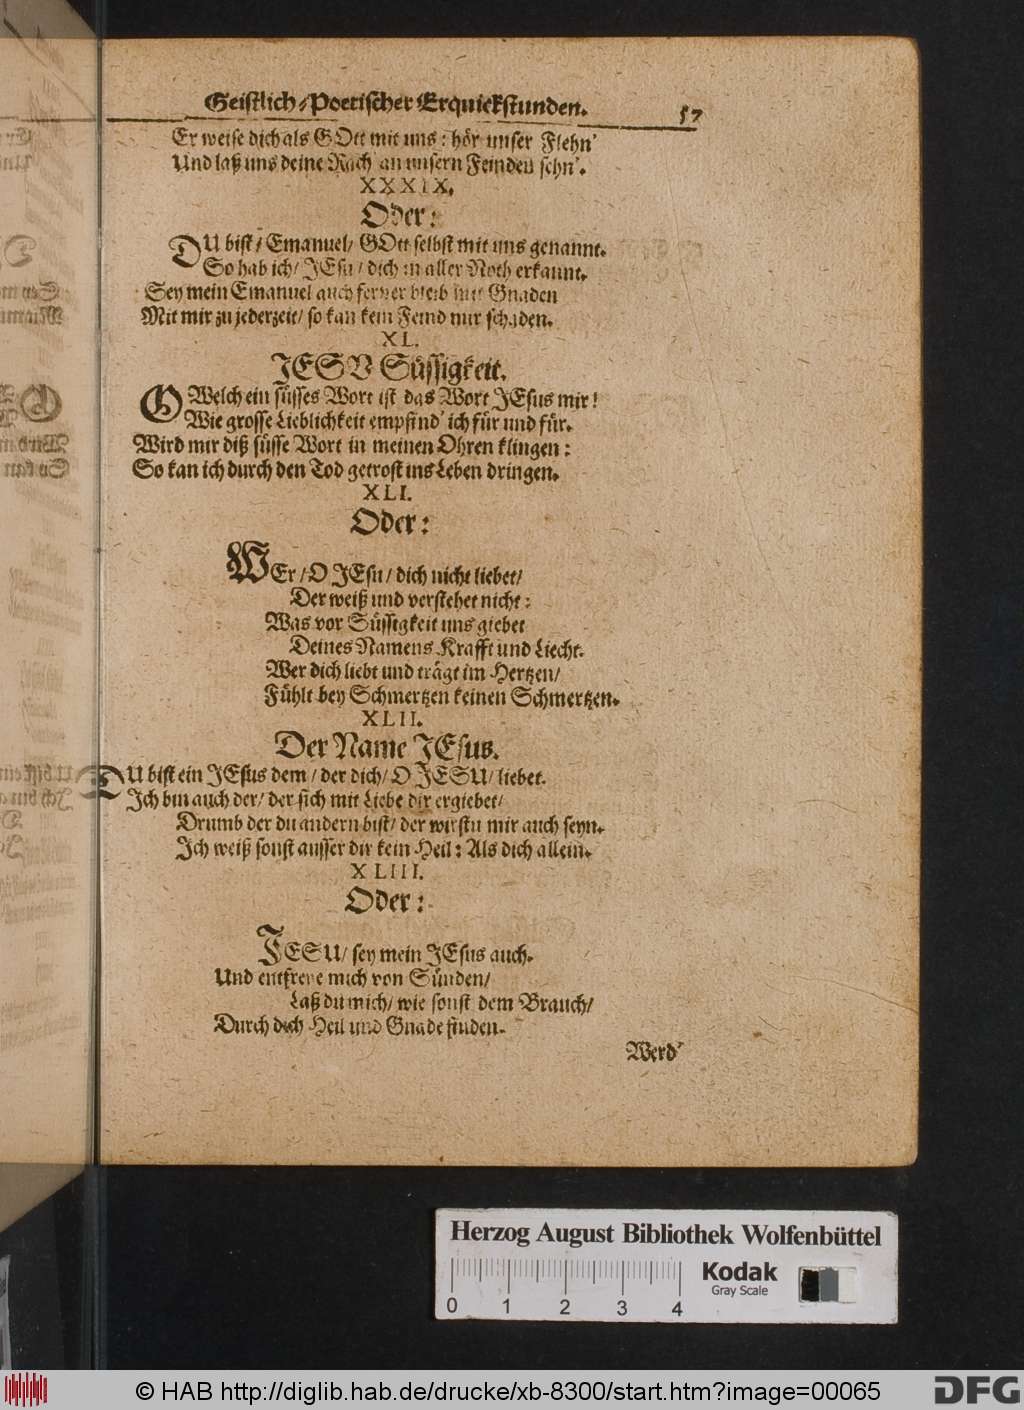 Geistlich-Poetischer Erquickstunden. 57
Er weise dich als GOtt mit uns: hör unser Flehn'
Und laß uns deine Rach' an unsern Feinden sehn'.
XXXIX.
Oder:
DU bist / Emanuel / GOtt selbst mit uns genannt.
So hab ich / JEsu / dich in aller Noth erkannt.
Sey mein Emanuel auch ferner bleib mit Gnaden
Mit mir zu jederzeit / so kan kein Feind mir schaden.
XL.
JESU Süssigkeit.
O Welch ein süsses Wort ist das Wort JEsus mir!
Wie grosse Lieblichkeit empfind' ich für und für.
Wird mir diß süsse Wort in meinen Ohren klingen:
So kan ich durch den Tod getrost ins Leben dringen.
XLI.
Oder:
WEr / O JEsu / dich nicht liebet /
Der weiß und verstehet nicht:
Was vor Süssigkeit uns giebet
Deines Namens Krafft und Liecht.
Wer dich liebt und trägt im Hertzen /
Fühlt bey Schmertzen keinen Schmertzen.
XLII.
Der Name JEsus.
DU bist ein JEsus dem / der dich / O JESU / liebet.
Ich bin auch der / der sich mit Liebe dir ergiebet /
Drumb der du andern bist / der wirstu mir auch seyn.
Ich weiß sonst ausser dir kein Heil: Als dich allein.
XLIII.
Oder:
JESU / sey mein JEsus auch.
Und entfreye mich von Sünden /
Laß du mich / wie sonst dem Brauch /
Durch dich Heil und Gnade finden.
Werd'
Herzog August Bibliothek Wolfenbüttel
Kodak
Gray Scale
0 1 2 3 4
© HAB http://diglib.hab.de/drucke/xb-8300/start.htm?image=00065
DFG